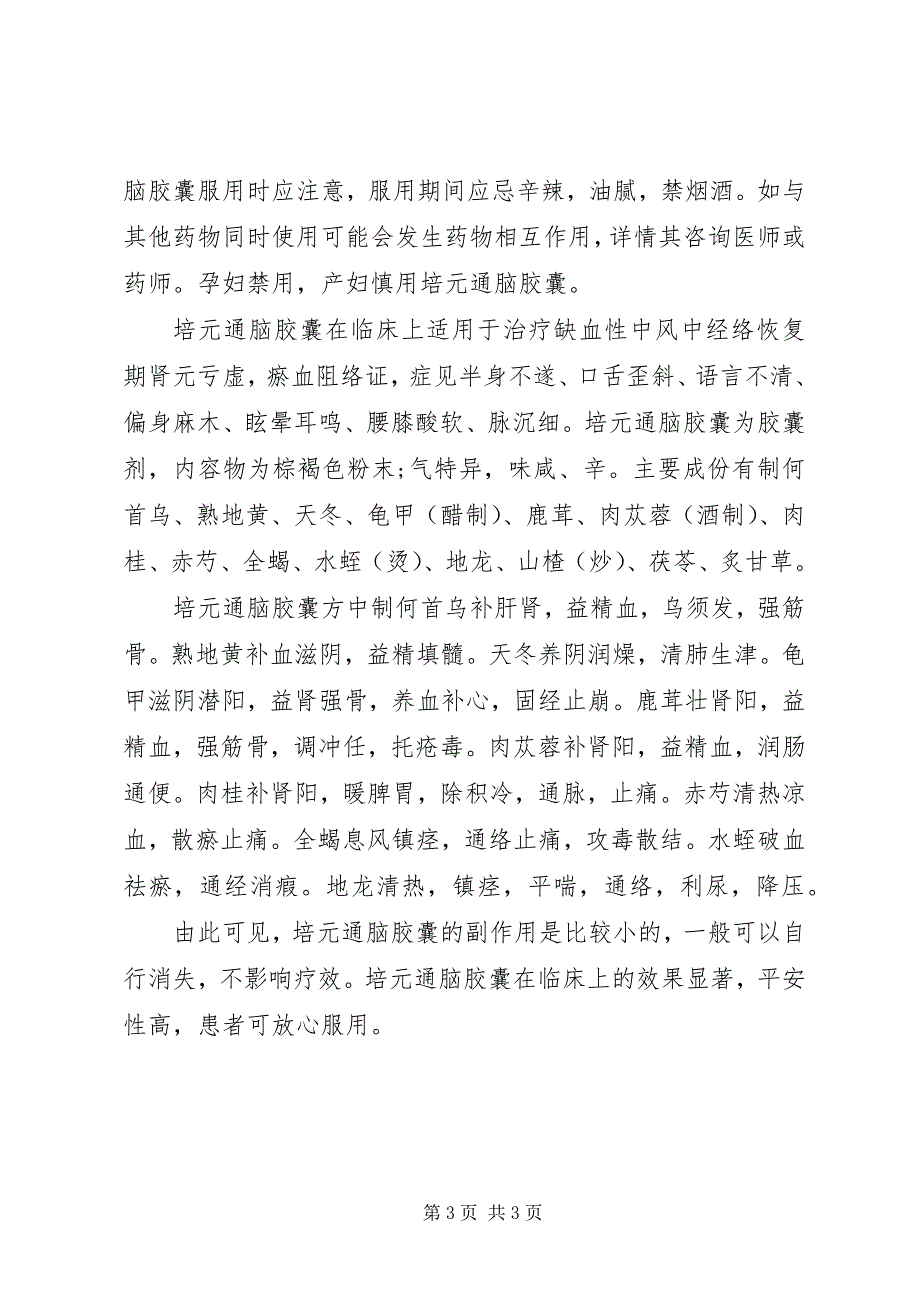 脑胶囊服用时应注意，服用期间应忌辛辣，油腻，禁烟酒。如与
其他药物同时使用可能会发生药物相互作用，详情其咨询医师或
药师。孕妇禁用，产妇慎用培元通脑胶囊。
培元通脑胶囊在临床上适用于治疗缺血性中风中经络恢复
期肾元亏虚，瘀血阻络证，症见半身不遂、口舌歪斜、语言不清、
偏身麻木、眩晕耳鸣、腰膝酸软、脉沉细。培元通脑胶囊为胶囊
剂，内容物为棕褐色粉末;气特异，味咸、辛。主要成份有制何
首乌、熟地黄、天冬、龟甲（醋制）、鹿茸、肉苁蓉（酒制）、肉
桂、赤芍、全蝎、水蛭（烫）、地龙、山楂（炒）、茯苓、炙甘草。
培元通脑胶囊方中制何首乌补肝肾，益精血，乌须发，强筋
骨。熟地黄补血滋阴，益精填髓。天冬养阴润燥，清肺生津。龟
甲滋阴潜阳，益肾强骨，养血补心，固经止崩。鹿茸壮肾阳，益
精血，强筋骨，调冲任，托疮毒。肉苁蓉补肾阳，益精血，润肠
通便。肉桂补肾阳，暖脾胃，除积冷，通脉，止痛。赤芍清热凉
血，散瘀止痛。全蝎息风镇痉，通络止痛，攻毒散结。水蛭破血
祛瘀，通经消瘕。地龙清热，镇痉，平喘，通络，利尿，降压。
由此可见，培元通脑胶囊的副作用是比较小的，一般可以自
行消失，不影响疗效。培元通脑胶囊在临床上的效果显著，平安
性高，患者可放心服用。
第 3 页 共 3 页